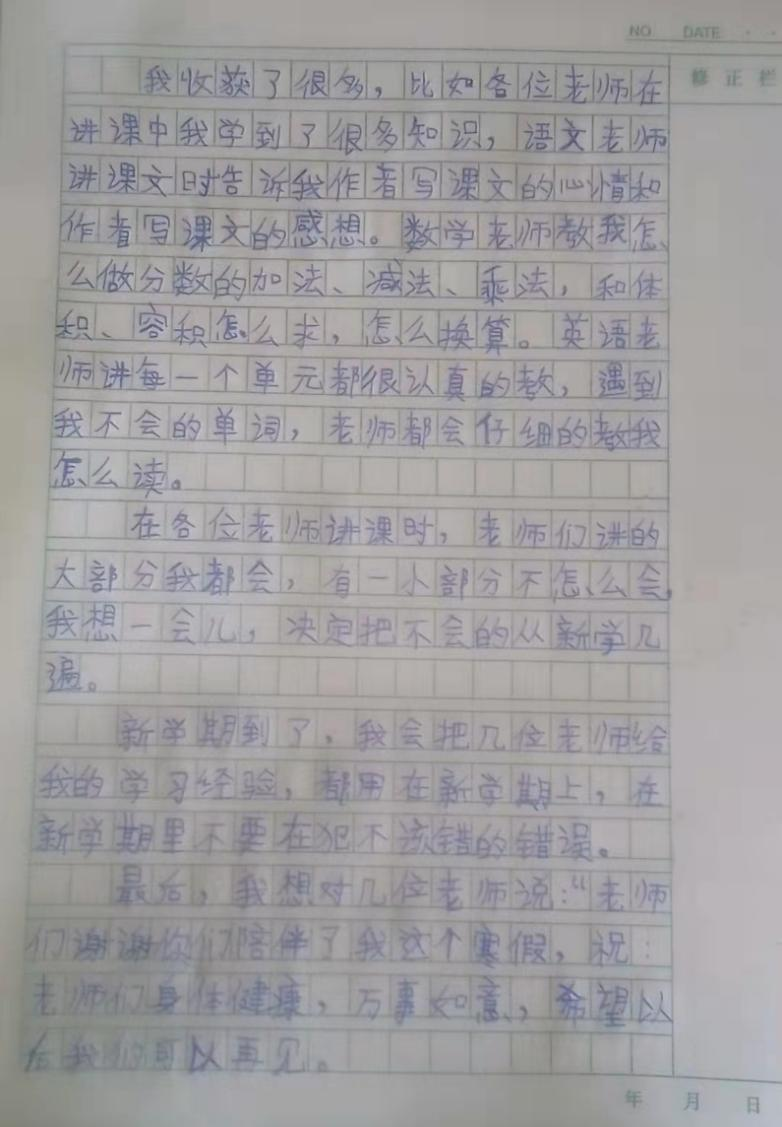 NO    DATE  ·  ·
修正栏
我收获了很多，比如各位老师在
讲课中我学到了很多知识，语文老师
讲课文时告诉我作者写课文的心情和
作者写课文的感想。数学老师教我怎
么做分数的加法、减法、乘法，和体
积、容积怎么求，怎么换算。英语老
师讲每一个单元都很认真的教，遇到
我不会的单词，老师都会仔细的教我
怎么读。
在各位老师讲课时，老师们讲的
大部分我都会，有一小部分不怎么会，
我想一会儿，决定把不会的从新学几
遍。
新学期到了，我会把几位老师给
我的学习经验，都用在新学期上，在
新学期里不要在犯不该错的错误。
最后，我想对几位老师说：“老师
们谢谢你们陪伴了我这个寒假，祝：
老师们身体健康，万事如意，希望以
后我们可以再见。
年 月 日